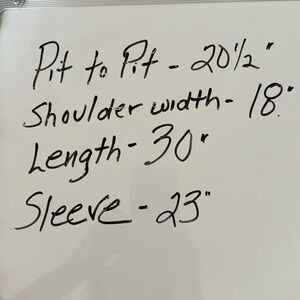 Pit to Pit - 20 1/2"
Shoulder width - 18"
Length - 30"
Sleeve - 23"